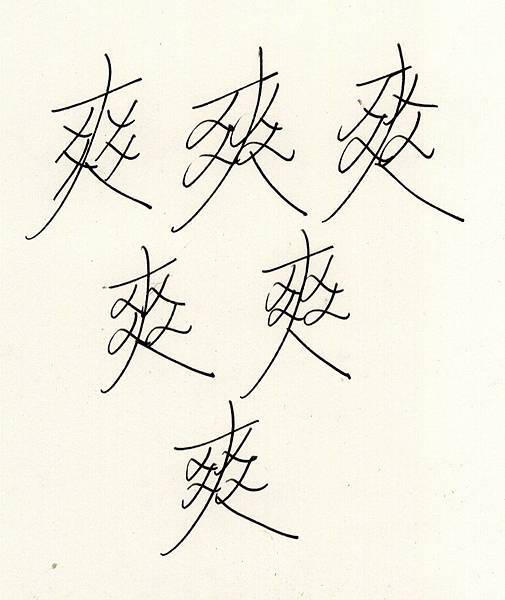 爽 爽 爽
爽 爽
爽